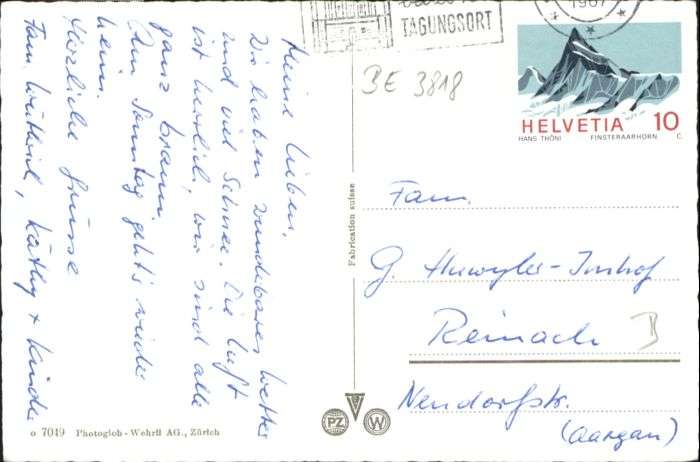 TAGUNGSORT
1967
BE 3818
HELVETIA 10
HANS THÖNI FINSTERAARHORN C.
Meine Lieben,
Wir haben wunderbares Wetter
und viel Schnee. Die Luft
ist herrlich, wir sind alle
ganz braun.
Am Samstag geht's wieder
heim.
Herzliche Grüsse
Fam. Wüthrich, Käthy + Kinder
Fabrication suisse
Fam.
G. Huwyler-Imhof
Reinach
Neudorfstr.
(Aargau)
PZ W
o 7019 Photoglob-Wehrli AG., Zürich